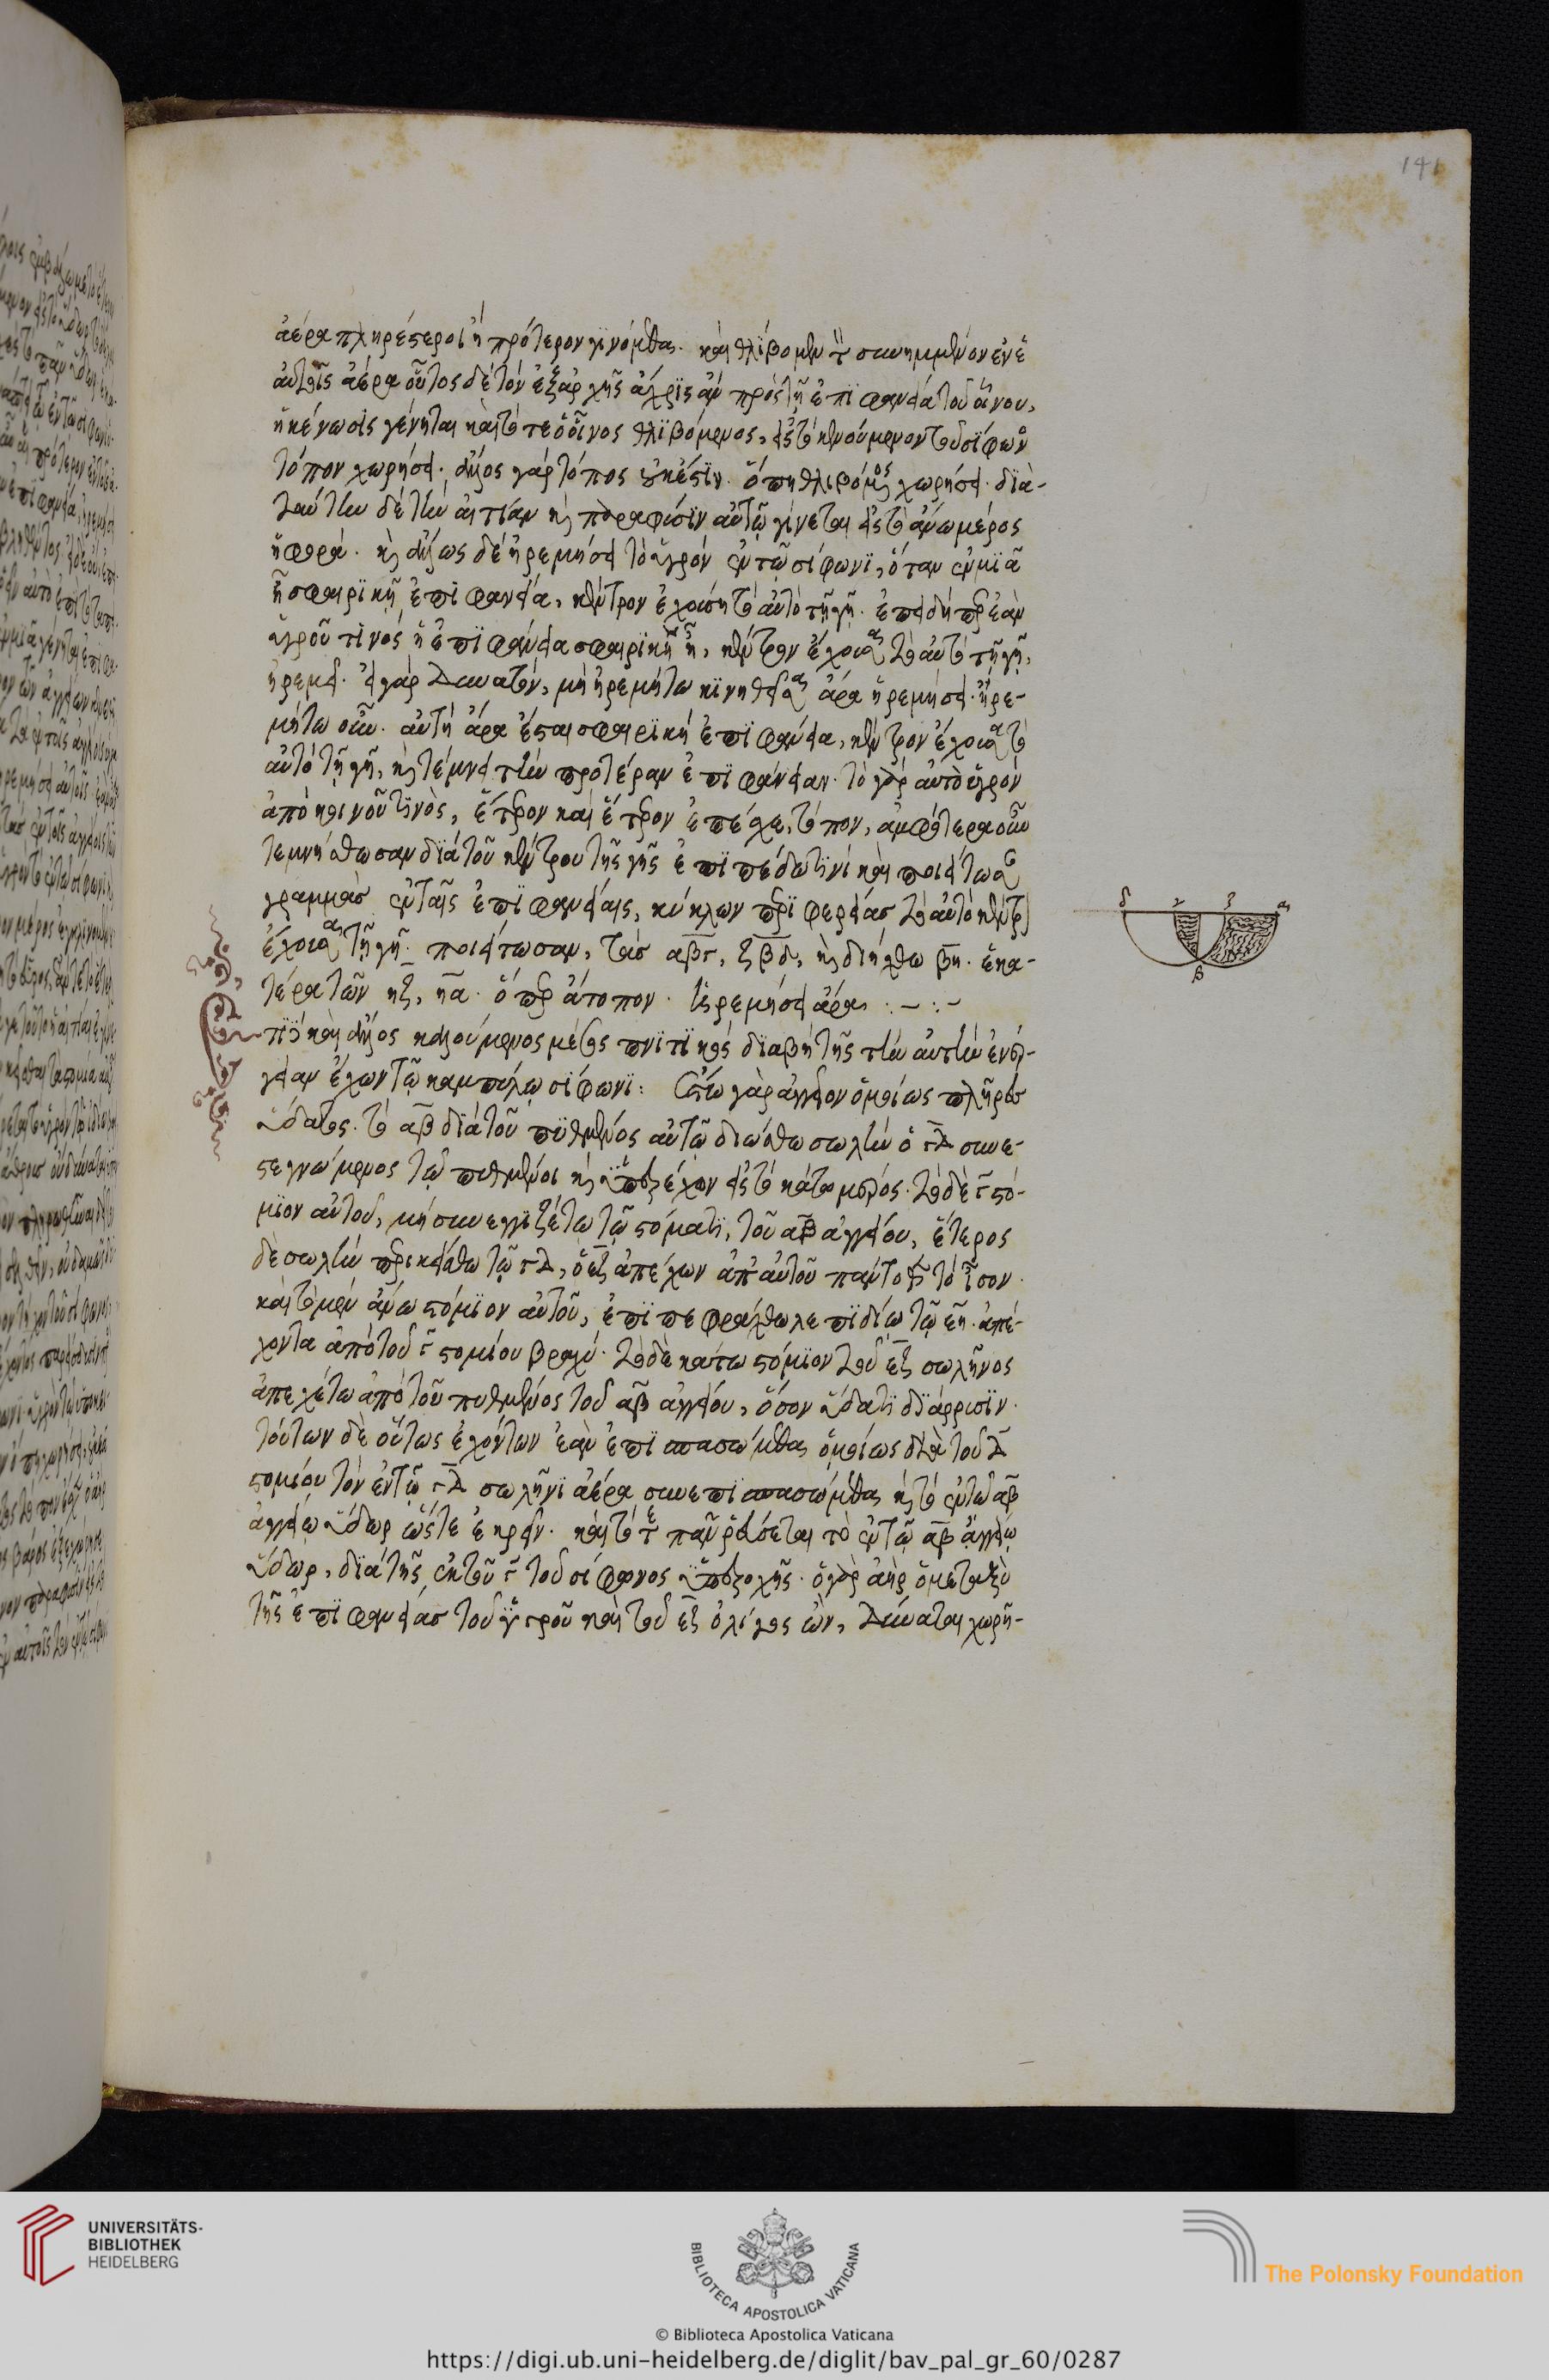 141
ἀέρα πληρέστεροι ἢ πρότερον γινόμεθα. καὶ θλίβομεν τὸν συνημμένον ἐν ἑ
αὐτοῖς ἀέρα οὗτος δὲ τὸν ἐξαρχῆς ἄχρις ἂν πρὸς τῇ ἐπιφανεία τοῦ οἴνου,
ἡ κένωσις γένηται καὶ τότε ὁ οἶνος θλιβόμενος, εἰς τὸ κενούμενον τοῦ σίφων
τόπον χωρήσει. ἄλλος γὰρ τόπος οὐκ ἔστιν. ὅπη θλιβόμενος χωρήσει. διὰ-
ταύτην δὲ τὴν αἰτίαν καὶ παραφύσιν αὐτῷ γίνεται εἰς τὸ ἄνω μέρος
ἡ φορά. καὶ ἄλλως δὲ ἠρεμήσει τὸ ὑγρὸν ἐν τῷ σίφωνι, ὅταν ἐν μιᾷ
ἦ σφαιρικῇ ἐπιφανεία, κέντρον ἐχούσῃ τὸ αὐτὸ τῇ γῇ. ἐπειδήπερ ἐὰν
ὑγροῦ τινὸς ἡ ἐπιφάνεια σφαιρικὴ ᾖ, κέντρον ἔχουσα τὸ αὐτὸ τῇ γῇ,
ἠρεμεῖ. εἰ γὰρ δυνατόν, μὴ ἠρεμήτω κινηθεῖσα ἄρα ἠρεμήσει. ἠρε-
μήτω οὖν. αὐτὴ ἄρα ἔσται σφαιρικὴ ἐπιφάνεια, κέντρον ἔχουσα τὸ
αὐτὸ τῇ γῇ, καὶ τέμνει τὴν προτέραν ἐπιφάνειαν. τὸ γὰρ αὐτὸ ὑγρὸν
ἀπὸ κοινοῦ τινὸς, ἕτερον καὶ ἕτερον ἐπέχει τόπον, ἀμφότεραι οὖν
τεμνήσθωσαν διὰ τοῦ κέντρου τῆς γῆς ἐπιπέδω τινὶ καὶ ποιείτωσαν
γραμμὰς ἐν ταῖς ἐπιφανείαις, κύκλων περιφερείας τὸ αὐτὸ κέντρον
ἐχούσας τῇ γῇ. ποιείτωσαν, τὰς αβγ, ξβδ, καὶ διήχθω βη. ἑκα-
τέρα τῶν ηξ, ηα. ὅπερ ἄτοπον. ἠρεμήσει ἄρα :—:—
τι καὶ ἄλλος καλούμενος μέσος πνικτικὸς διαβήτης τὴν αὐτὴν ἐνέρ-
γειαν ἔχων τῷ καμπύλῳ σίφωνι: ἔστω γὰρ ἀγγεῖον ὁμοίως πλῆρες
ὕδατος. τὸ αβ διὰ τοῦ πυθμένος αὐτῶ διώσθω σωλὴν ὁ γδ συνε-
στεγνωμένος τῷ πυθμένι καὶ ὑπερέχων εἰς τὸ κάτω μέρος. τὸ δὲ γ στό-
μιον αὐτοῦ, μὴ συνεγγιζέτω τῷ στόματι, τοῦ αβ ἀγγείου, ἕτερος
δὲ σωλὴν περικείσθω τῷ γδ, ὁ εξ ἀπέχων ἀπ' αὐτοῦ παντοθεν τὸ ἴσον.
καὶ τὸ μὲν ἄνω στόμιον αὐτοῦ, ἐπιπεφράχθω λεπιδίω τῷ εη. ἀπέ-
χοντα ἀπὸ τοῦ γ στομίου βραχύ. τὸ δὲ κάτω στόμιον τοῦ εξ σωλῆνος
ἀπεχέτω ἀπὸ τοῦ πυθμένος τοῦ αβ ἀγγείου, ὅσον ὕδατι διάρρυσιν.
τούτων δὲ οὕτως ἐχόντων ἐὰν ἐπισπασώμεθα ὁμοίως διὰ τοῦ δ
στομίου τὸν ἐν τῷ γδ σωλῆνι ἀέρα συνεπισπασώμεθα καὶ τὸ ἐν τῷ αβ
ἀγγείω ὕδωρ ὥστε ἐκρεῖν. καὶ τότε πᾶν ῥεύσεται τὸ ἐν τῷ αβ ἀγγείῳ
ὕδωρ, διὰ τῆς ἐκτοῦ γ τοῦ σίφωνος ὑπεροχῆς. ὁ γὰρ ἀὴρ ὁ μεταξὺ
τῆς ἐπιφανείας τοῦ ὑγροῦ καὶ τοῦ εξ ὀλίγος ὢν, δύναται χωρῆ-
δ γ ξ α
β
UNIVERSITÄTS-
BIBLIOTHEK
HEIDELBERG
BIBLIOTECA APOSTOLICA VATICANA
The Polonsky Foundation
© Biblioteca Apostolica Vaticana
https://digi.ub.uni-heidelberg.de/diglit/bav_pal_gr_60/0287